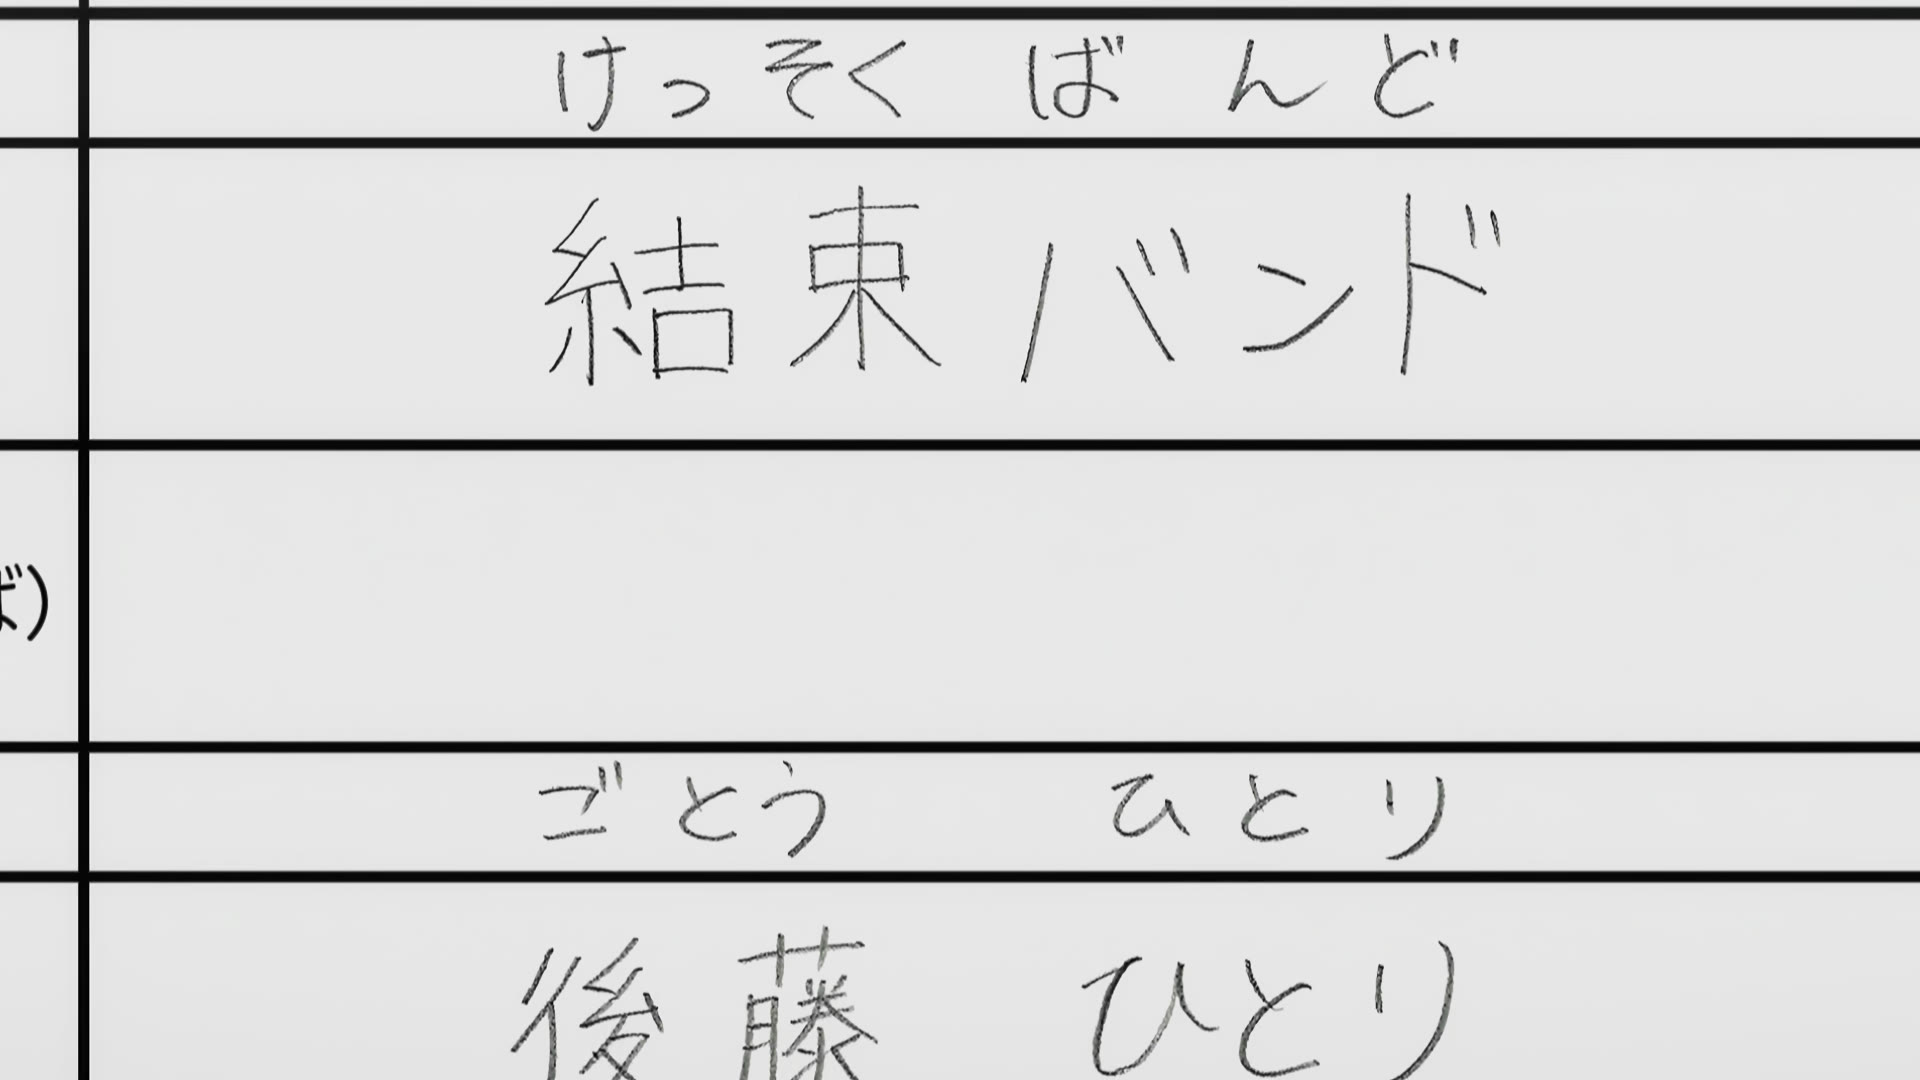 けっそくばんど
結束バンド
ば)
ごとう ひとり
後藤 ひとり